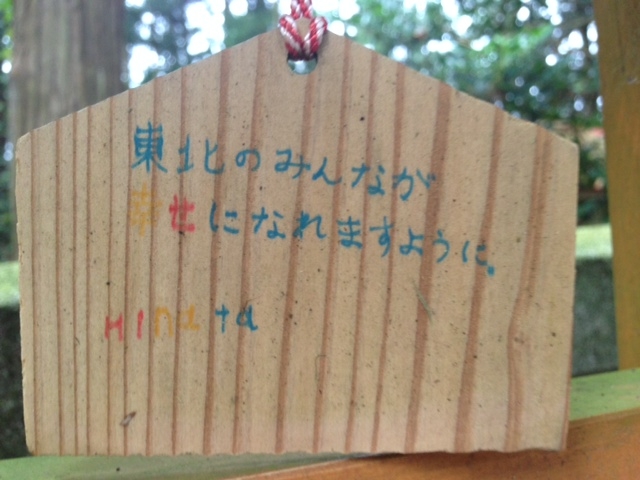 東北のみんなが
幸せになれますように。
Hinata